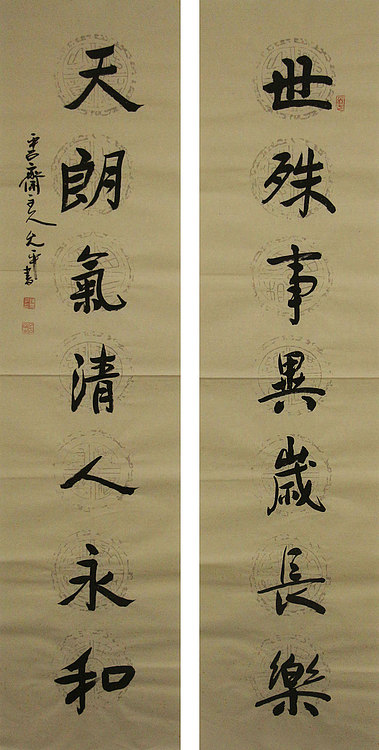 世殊事異歲長樂
天朗氣清人永和
齋主人允平書